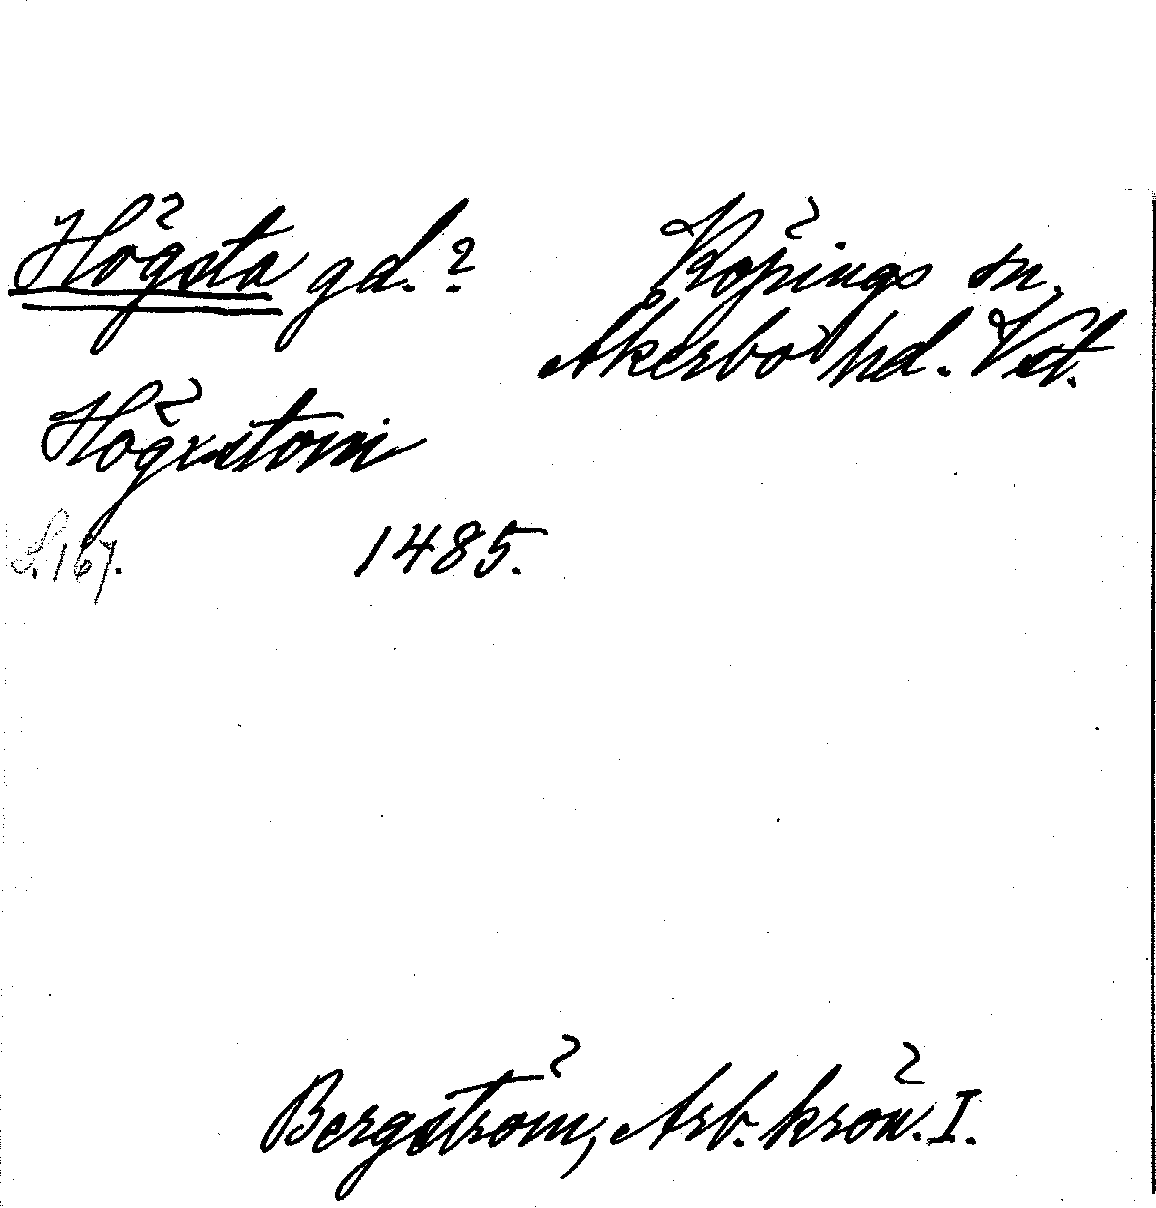 Högsta gd.?
Köpings sn.
Åkerbo hd. Vstl.
Högxstom
S. 167.
1485.
Bergström, Arb. krön. I.